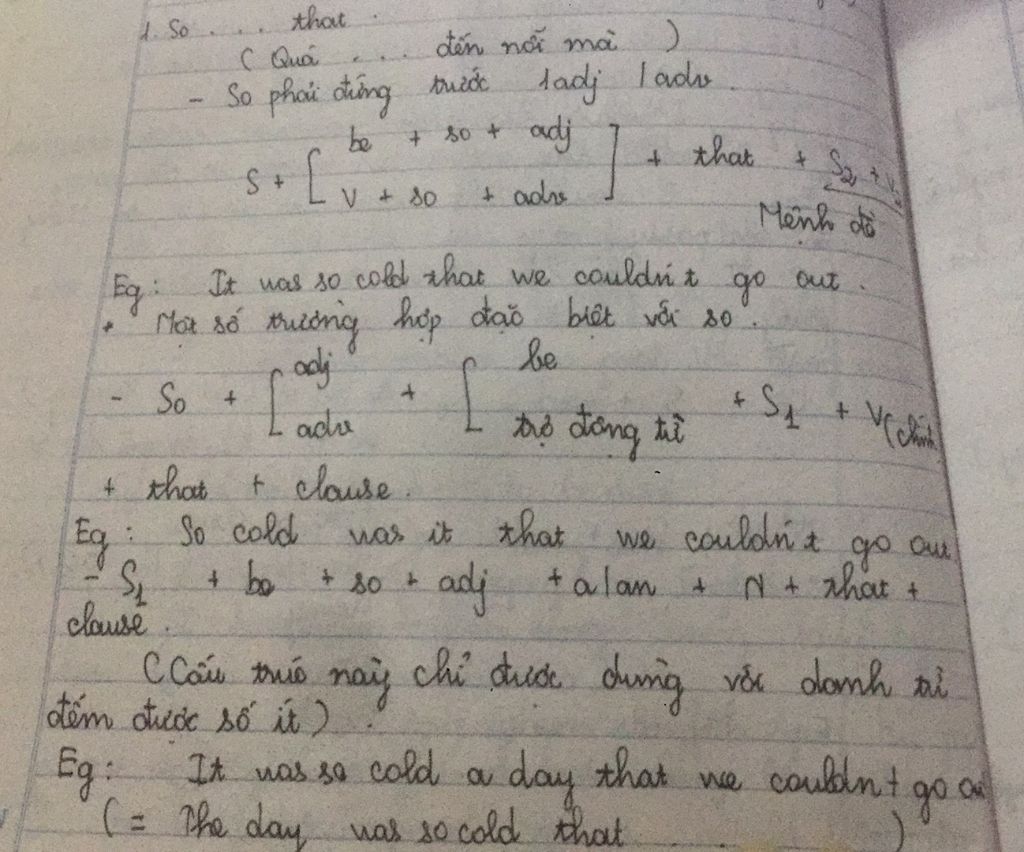 1. So . . . . that .
( Quá . . . đến nỗi mà )
- So phải đứng trước 1adj / adv .
be + so + adj
S + [ ] + that + S2 + V
V + so + adv
Mệnh đề
Eg : It was so cold that we couldn't go out .
* Một số trường hợp đặc biệt với so .
adj be
- So + [ + [ + S1 + V(chính)
adv trợ động từ
+ that + clause .
Eg : So cold was it that we couldn't go out
- S1 + be + so + adj + a/an + N + that +
clause .
(Cấu trúc này chỉ được dùng với danh từ
đếm được số ít) .
Eg : It was so cold a day that we couldn't go ou
( = The day was so cold that . . . . )